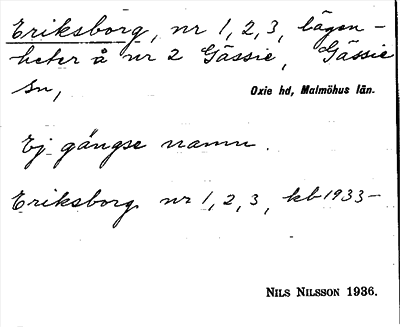 Eriksborg, nr 1, 2, 3, lägen-
heter å nr 2 Gässie, Gässie
sn,
Oxie hd, Malmöhus län.
Ej gängse namn.
Eriksborg nr 1, 2, 3, kb 1933-
NILS NILSSON 1936.